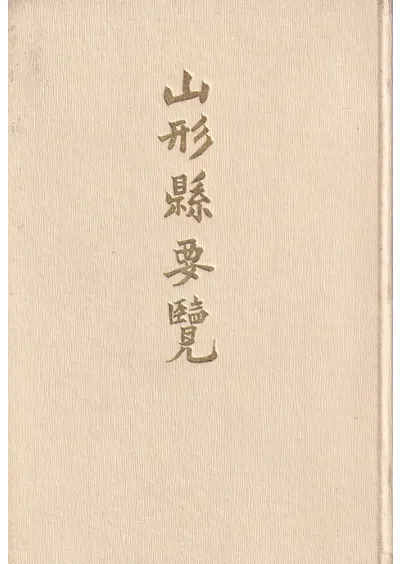 山形縣要覽